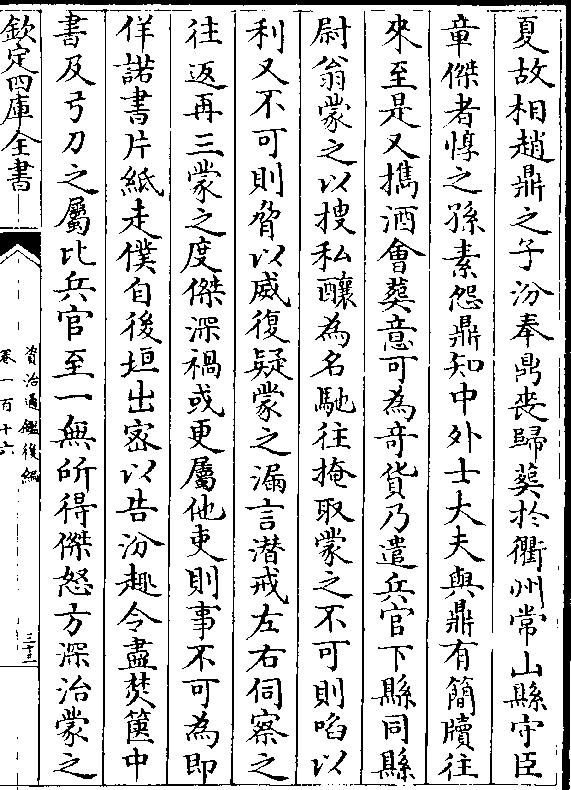 夏故相趙鼎之子汾奉鼎喪歸葬於衢州常山縣守臣
章傑者惇之孫素怨鼎知中外士大夫與鼎有簡牘往
來至是又攜酒會葬意可為奇貨乃遣兵官下縣同縣
尉翁蒙之以搜私釀為名馳往掩取蒙之不可則啗以
利又不可則脅以威復疑蒙之漏言潛戒左右伺察之
往返再三蒙之度傑深禍或更屬他吏則事不可為即
佯諾書片紙走僕自後垣出密以告汾趣令盡焚篋中
書及弓刀之屬比兵官至一無所得傑怒方深治蒙之
欽定四庫全書
資治通鑑後編
卷一百十六
三十三